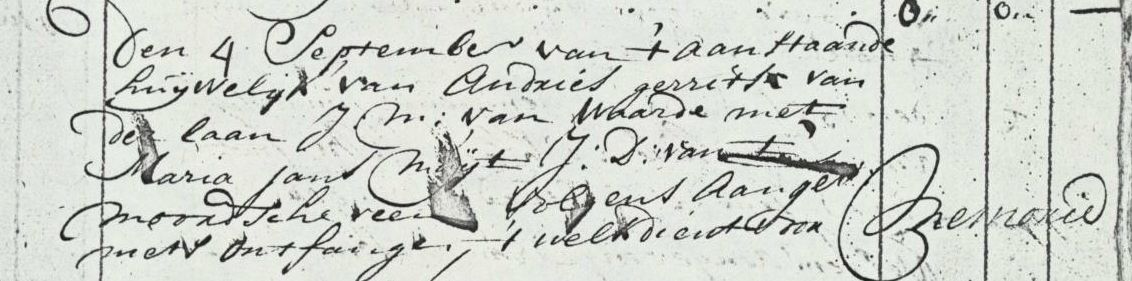 Den 4 September van 't aanstaande
huijwelijk van Andries gerritsz van
der laan J: m: van Waarde met
Maria Jans J: D: van
moordsche veen volgens aangev
niets ontfange 't welk dient voor Memorie